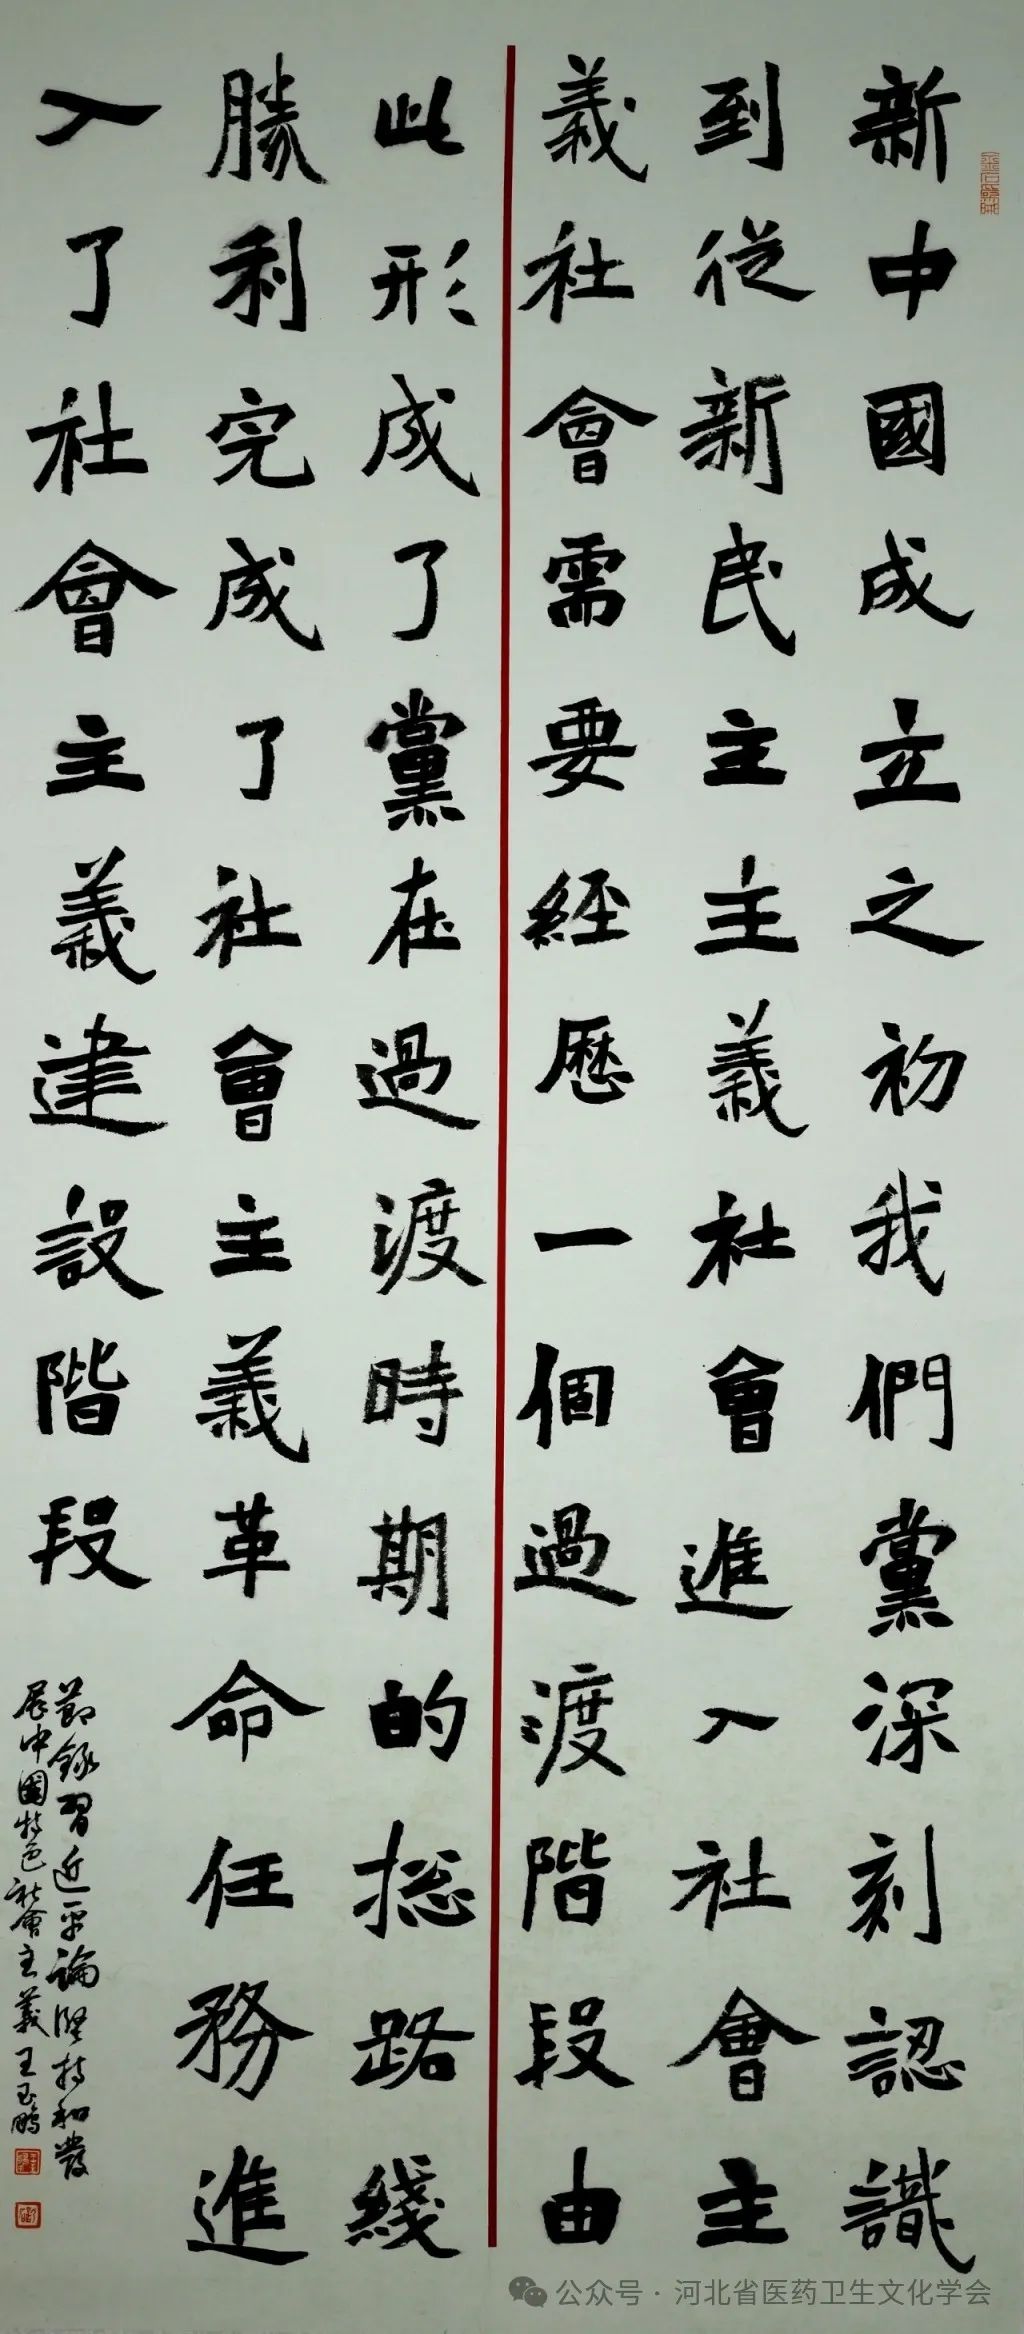 新中國成立之初我們黨深刻認識
到從新民主主義社會進入社會主
義社會需要經歷一個過渡階段由
此形成了黨在過渡時期的捴路綫
勝利完成了社會主義革命任務進
入了社會主義建設階段
節錄習近平論堅持和發
展中國特色社會主義王玉鵬
公众号·河北省医药卫生文化学会